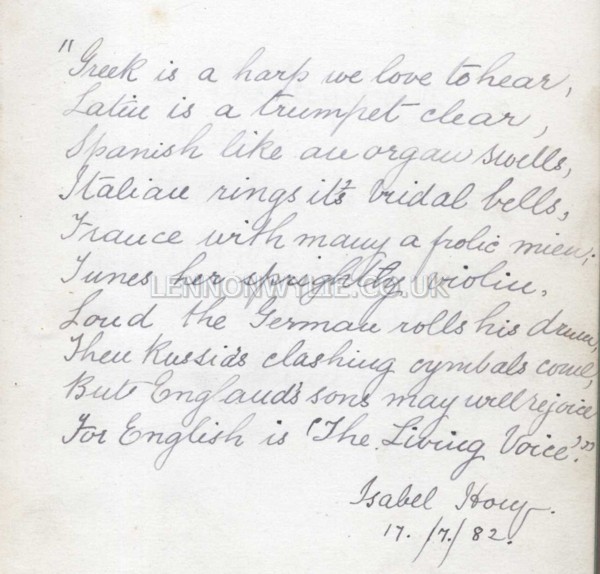 "Greek is a harp we love to hear,
Latin is a trumpet clear,
Spanish like an organ swells,
Italian rings it's bridal bells,
France with many a frolic mien;
Tunes her sprightly violin,
LENNONWYLIE.CO.UK
Loud the German rolls his drum,
Then Russia's clashing cymbals come,
But England's sons may well rejoice
For English is 'The Living Voice'."
Isabel
17./7./82.